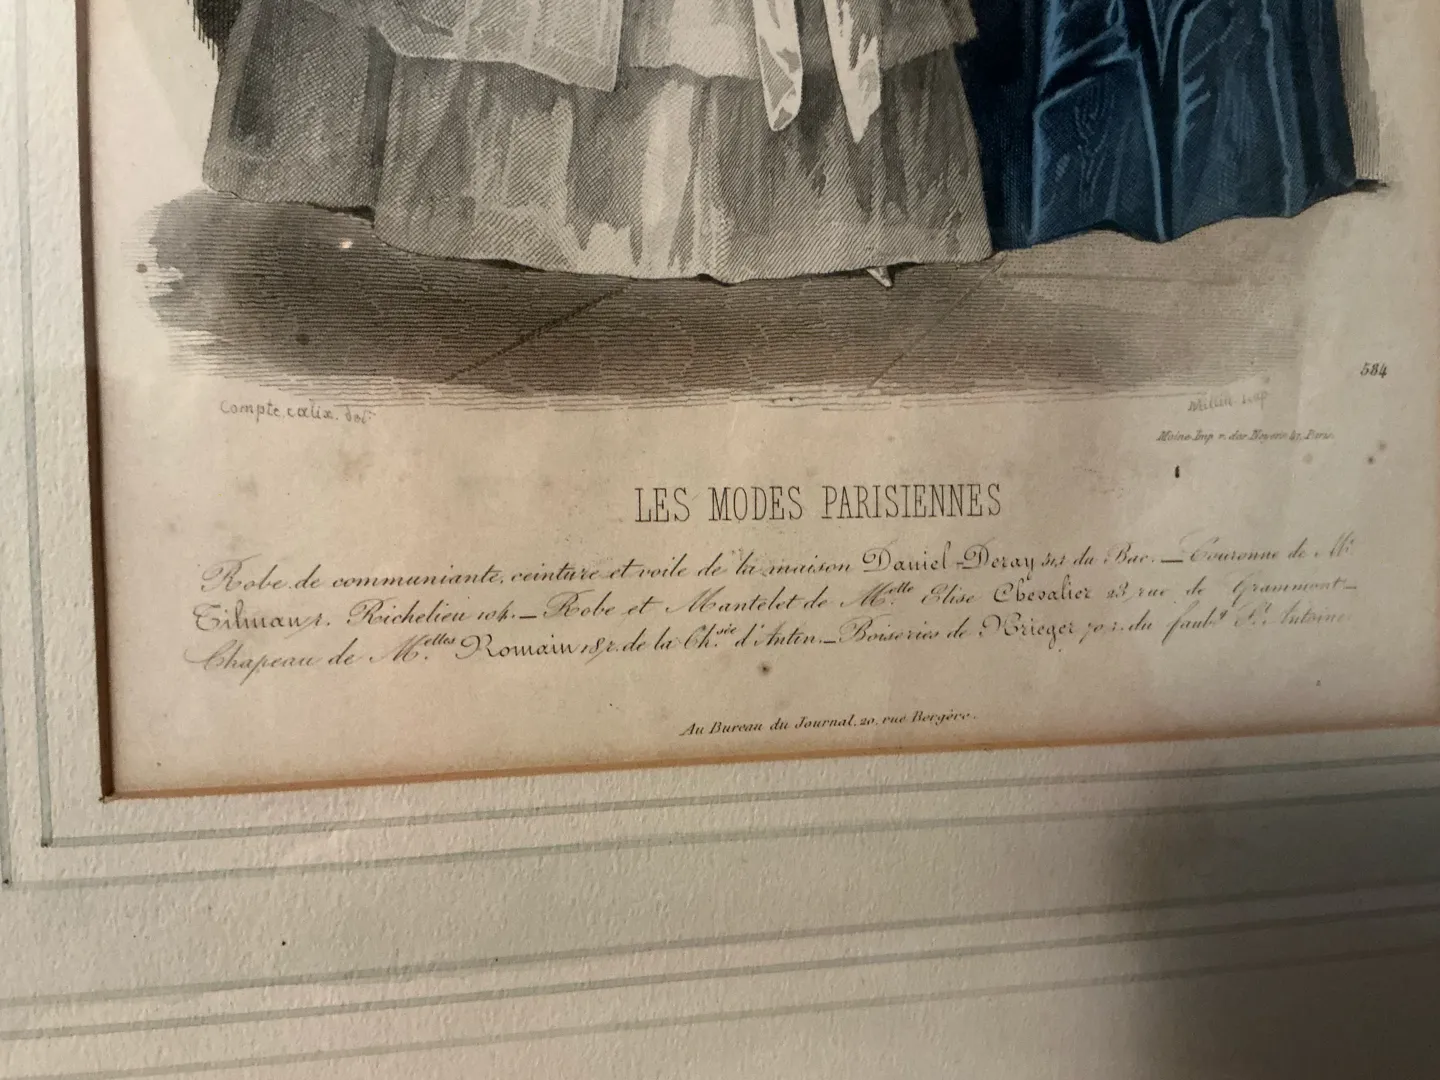 584
Compte.calix. del
Imp
Moine. Imp r. des Noyers 47. Paris.
LES MODES PARISIENNES
Robe de communiante, ceinture et voile de la maison Daniel-Deray 51,r du Bac. — Couronne de Mr
Tilman, r. Richelieu 104. — Robe et Mantelet de Melle Elise Chevalier 23, rue de Grammont —
Chapeau de Melles Romain 18,r. de la Ch.sée d'Antin. — Boiseries de Krieger 70,r. du faubg St Antoine
Au Bureau du Journal, 20, rue Bergère.